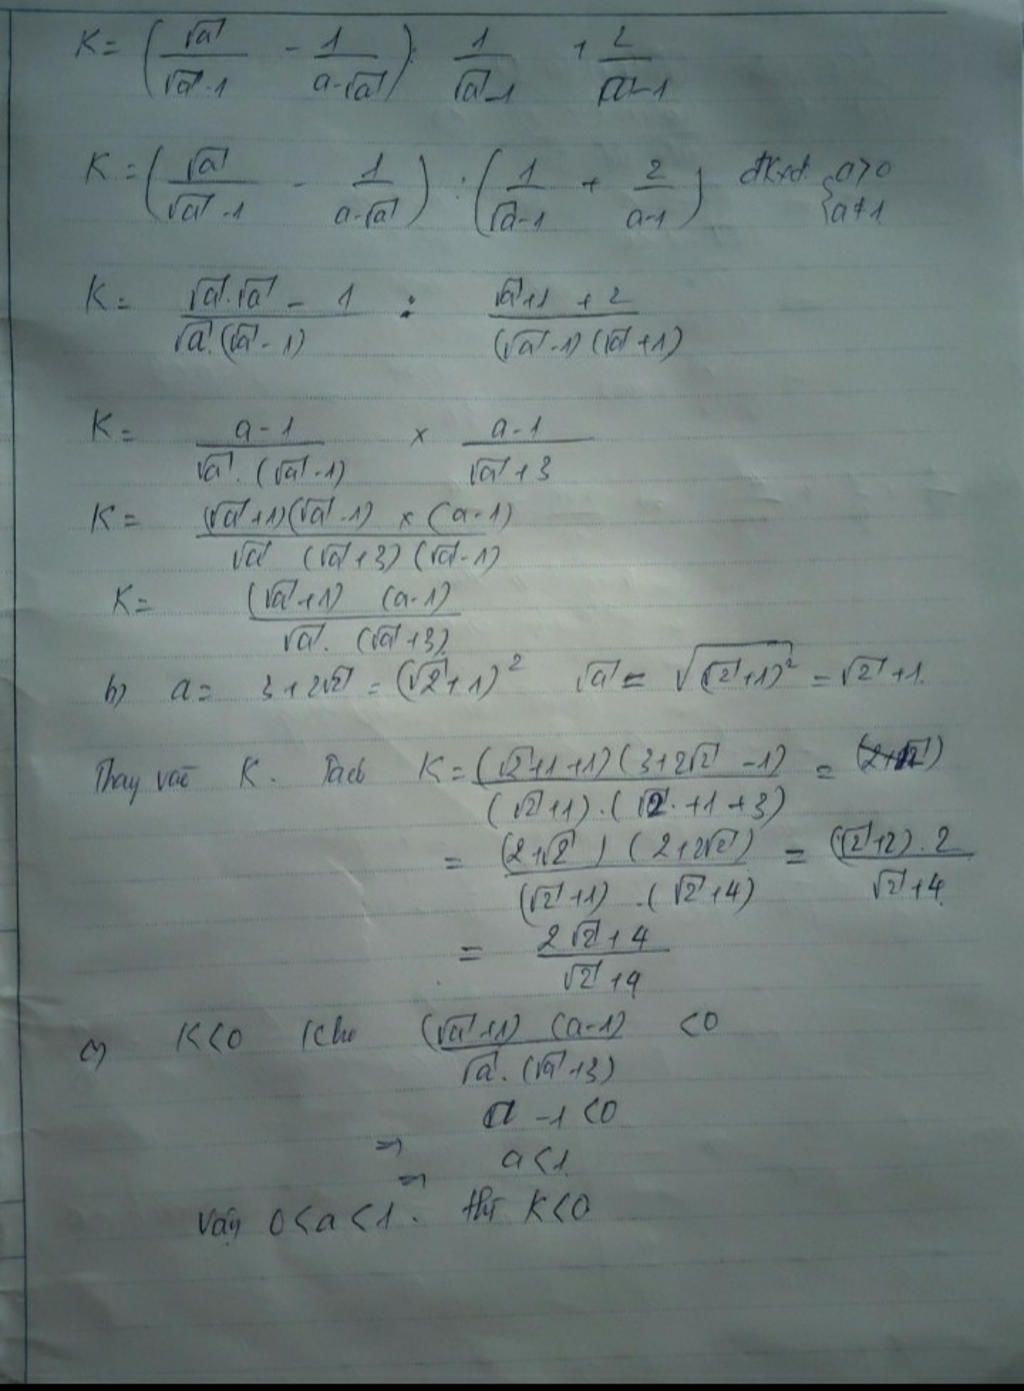 K = (√a/(√a - 1) - 1/(a - √a)) : 1/(√a - 1) + 2/(√a - 1)
K = (√a/(√a - 1) - 1/(a - √a)) : (1/(√a - 1) + 2/(a - 1)) đkxđ {a > 0 a ≠ 1
K = (√a.√a - 1)/(√a.(√a - 1)) : (√a + 1 + 2)/((√a - 1)(√a + 1))
K = (a - 1)/(√a.(√a - 1)) × (a - 1)/(√a + 3)
K = ((√a + 1)(√a - 1) × (a - 1))/(√a (√a + 3)(√a - 1))
K = ((√a + 1) (a - 1))/(√a.(√a + 3))
b) a = 3 + 2√2 = (√2 + 1)² √a = √(√2 + 1)² = √2 + 1.
Thay vào K. K = ((√2 + 1 + 1)(3 + 2√2 - 1))/((√2 + 1).(√2 + 1 + 3)) = (2+√2)
= ((2 + √2)(2 + 2√2))/((√2 + 1).(√2 + 4)) = ((√2 + 2).2)/(√2 + 4)
= (2√2 + 4)/(√2 + 4)
c) K < 0 Khi ((√a + 1) (a - 1))/(√a.(√a + 3)) < 0
a - 1 < 0
⇒ a < 1
⇒
Vậy 0 < a < 1. thì K < 0